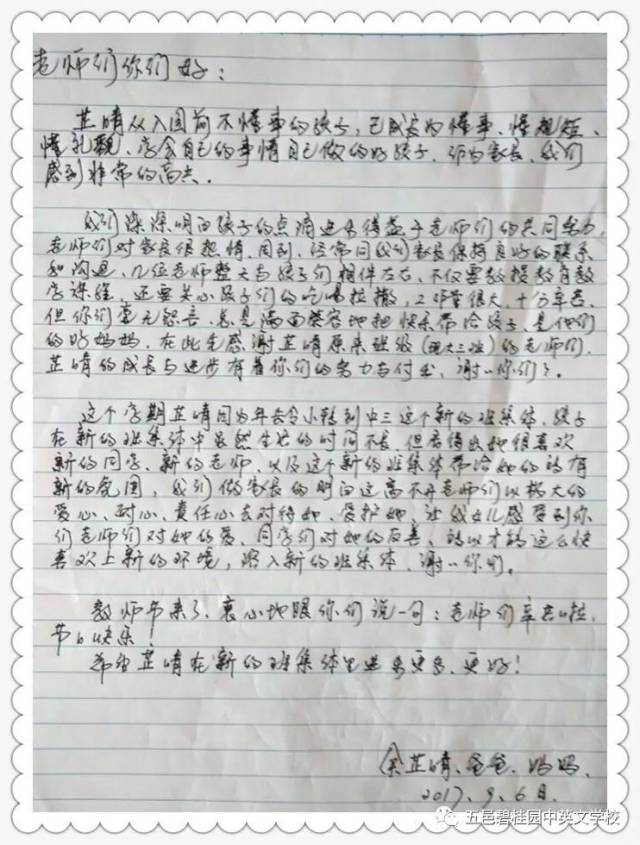 老师们你们好：
芷晴从入园前不懂事的孩子，已成长为懂事、懂规矩、
懂礼貌、学会自己的事情自己做的好孩子，作为家长，我们
感到非常的高兴。
我们深深明白孩子的点滴进步得益于老师们的共同努力，
老师们对家长很热情、周到，经常同我们家长保持良好的联系
和沟通，几位老师整天与孩子们相伴左右，不仅要教授教育教
学课程，还要关心孩子们的吃喝拉撒，工作量很大，十分辛苦，
但你们毫无怨言，总是满面笑容地把快乐带给孩子，是他们
的好妈妈，在此先感谢芷晴原来班级（现大三班）的老师们，
芷晴的成长与进步有着你们的努力与付出，谢谢你们了。
这个学期芷晴因为年龄小转到中三这个新的班集体，孩子
在新的班集体中虽然生活的时间不长，但看得出她很喜欢
新的同学、新的老师，以及这个新的班集体带给她的所有
新的氛围，我们做家长的明白这离不开老师们以极大的
爱心、耐心、责任心去对待她、爱护她，让我女儿感受到你
们老师们对她的爱、同学们对她的友善，所以才能这么快
喜欢上新的环境，溶入新的班集体，谢谢你们。
教师节来了，衷心地跟你们说一句：老师们辛苦啦，
节日快乐！
希望芷晴在新的班集体里进步更多、更好！
余芷晴、爸爸、妈妈、
2017、9、6日、
五邑碧桂园中英文学校